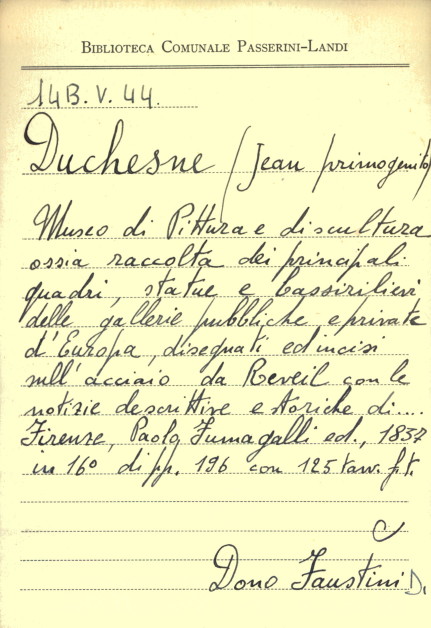 BIBLIOTECA COMUNALE PASSERINI-LANDI
14B.V.44.
Duchesne (Jean primogenito)
Museo di Pittura e di scultura
ossia raccolta dei principali
quadri, statue e bassirilievi
delle gallerie pubbliche e private
d'Europa, disegnati ed incisi
sull'acciaio da Reveil con le
notizie descrittive e storiche di....
Firenze, Paolo Fumagalli ed., 1837
in 16° di pp. 196 con 125 tavv. f.t.
C
Dono Faustini D.